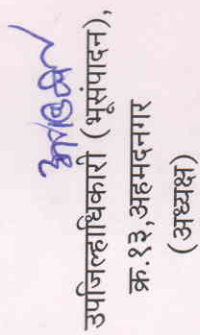 उपजिल्हाधिकारी (भूसंपादन),
क्र.१३,अहमदनगर
(अध्यक्ष)